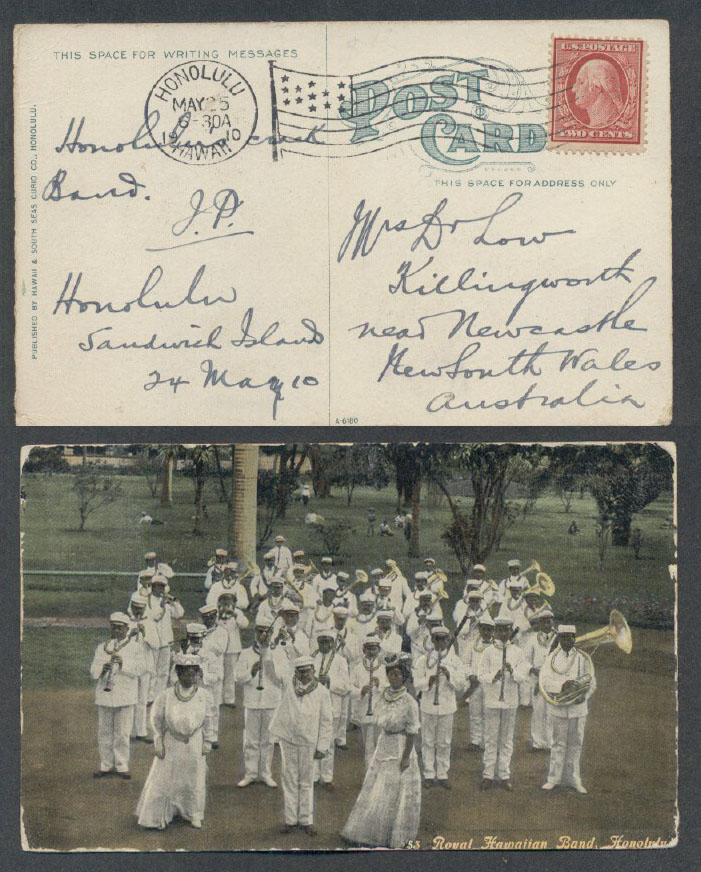 THIS SPACE FOR WRITING MESSAGES
POST CARD
THIS SPACE FOR ADDRESS ONLY
U.S. POSTAGE
TWO CENTS
HONOLULU
MAY 25
6-30A
1910
HAWAII
Honolulu crack
Band.
J.P.
Honolulu
Sandwich Island
24 May 10
Mrs Dr Low
Killingworth
near Newcastle
New South Wales
Australia
PUBLISHED BY HAWAII & SOUTH SEAS CURIO CO., HONOLULU.
A-6180
83 Royal Hawaiian Band, Honolulu